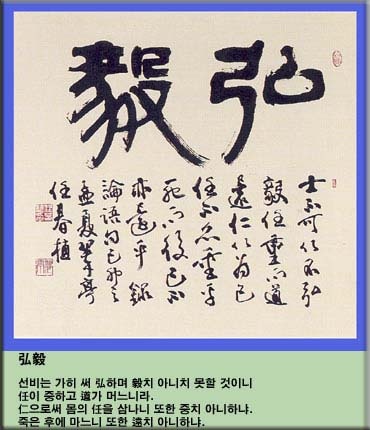 弘毅
士不可以不弘
毅任重而道
遠仁以為己
任不亦重乎
死而後已不
亦遠乎 錄
論語句己卯之
孟夏翠亭
任春植
弘毅
선비는 가히 써 弘하며 毅치 아니치 못할 것이니
任이 중하고 道가 머느니라.
仁으로써 몸의 任을 삼나니 또한 중치 아니하냐.
죽은 후에 마느니 또한 遠치 아니하냐.